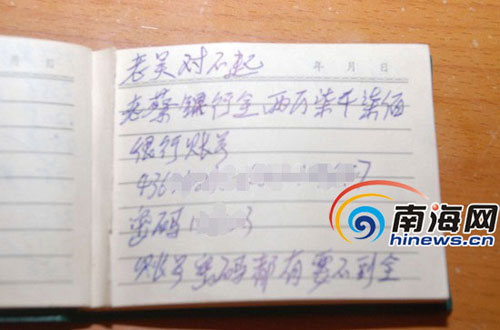 月 日
年 月 日
老吴对不起
老蔡银行全两万柒千柒佰
银行账号
436 7
密码 3
账号密码都有要不到全
南海网
hinews.cn